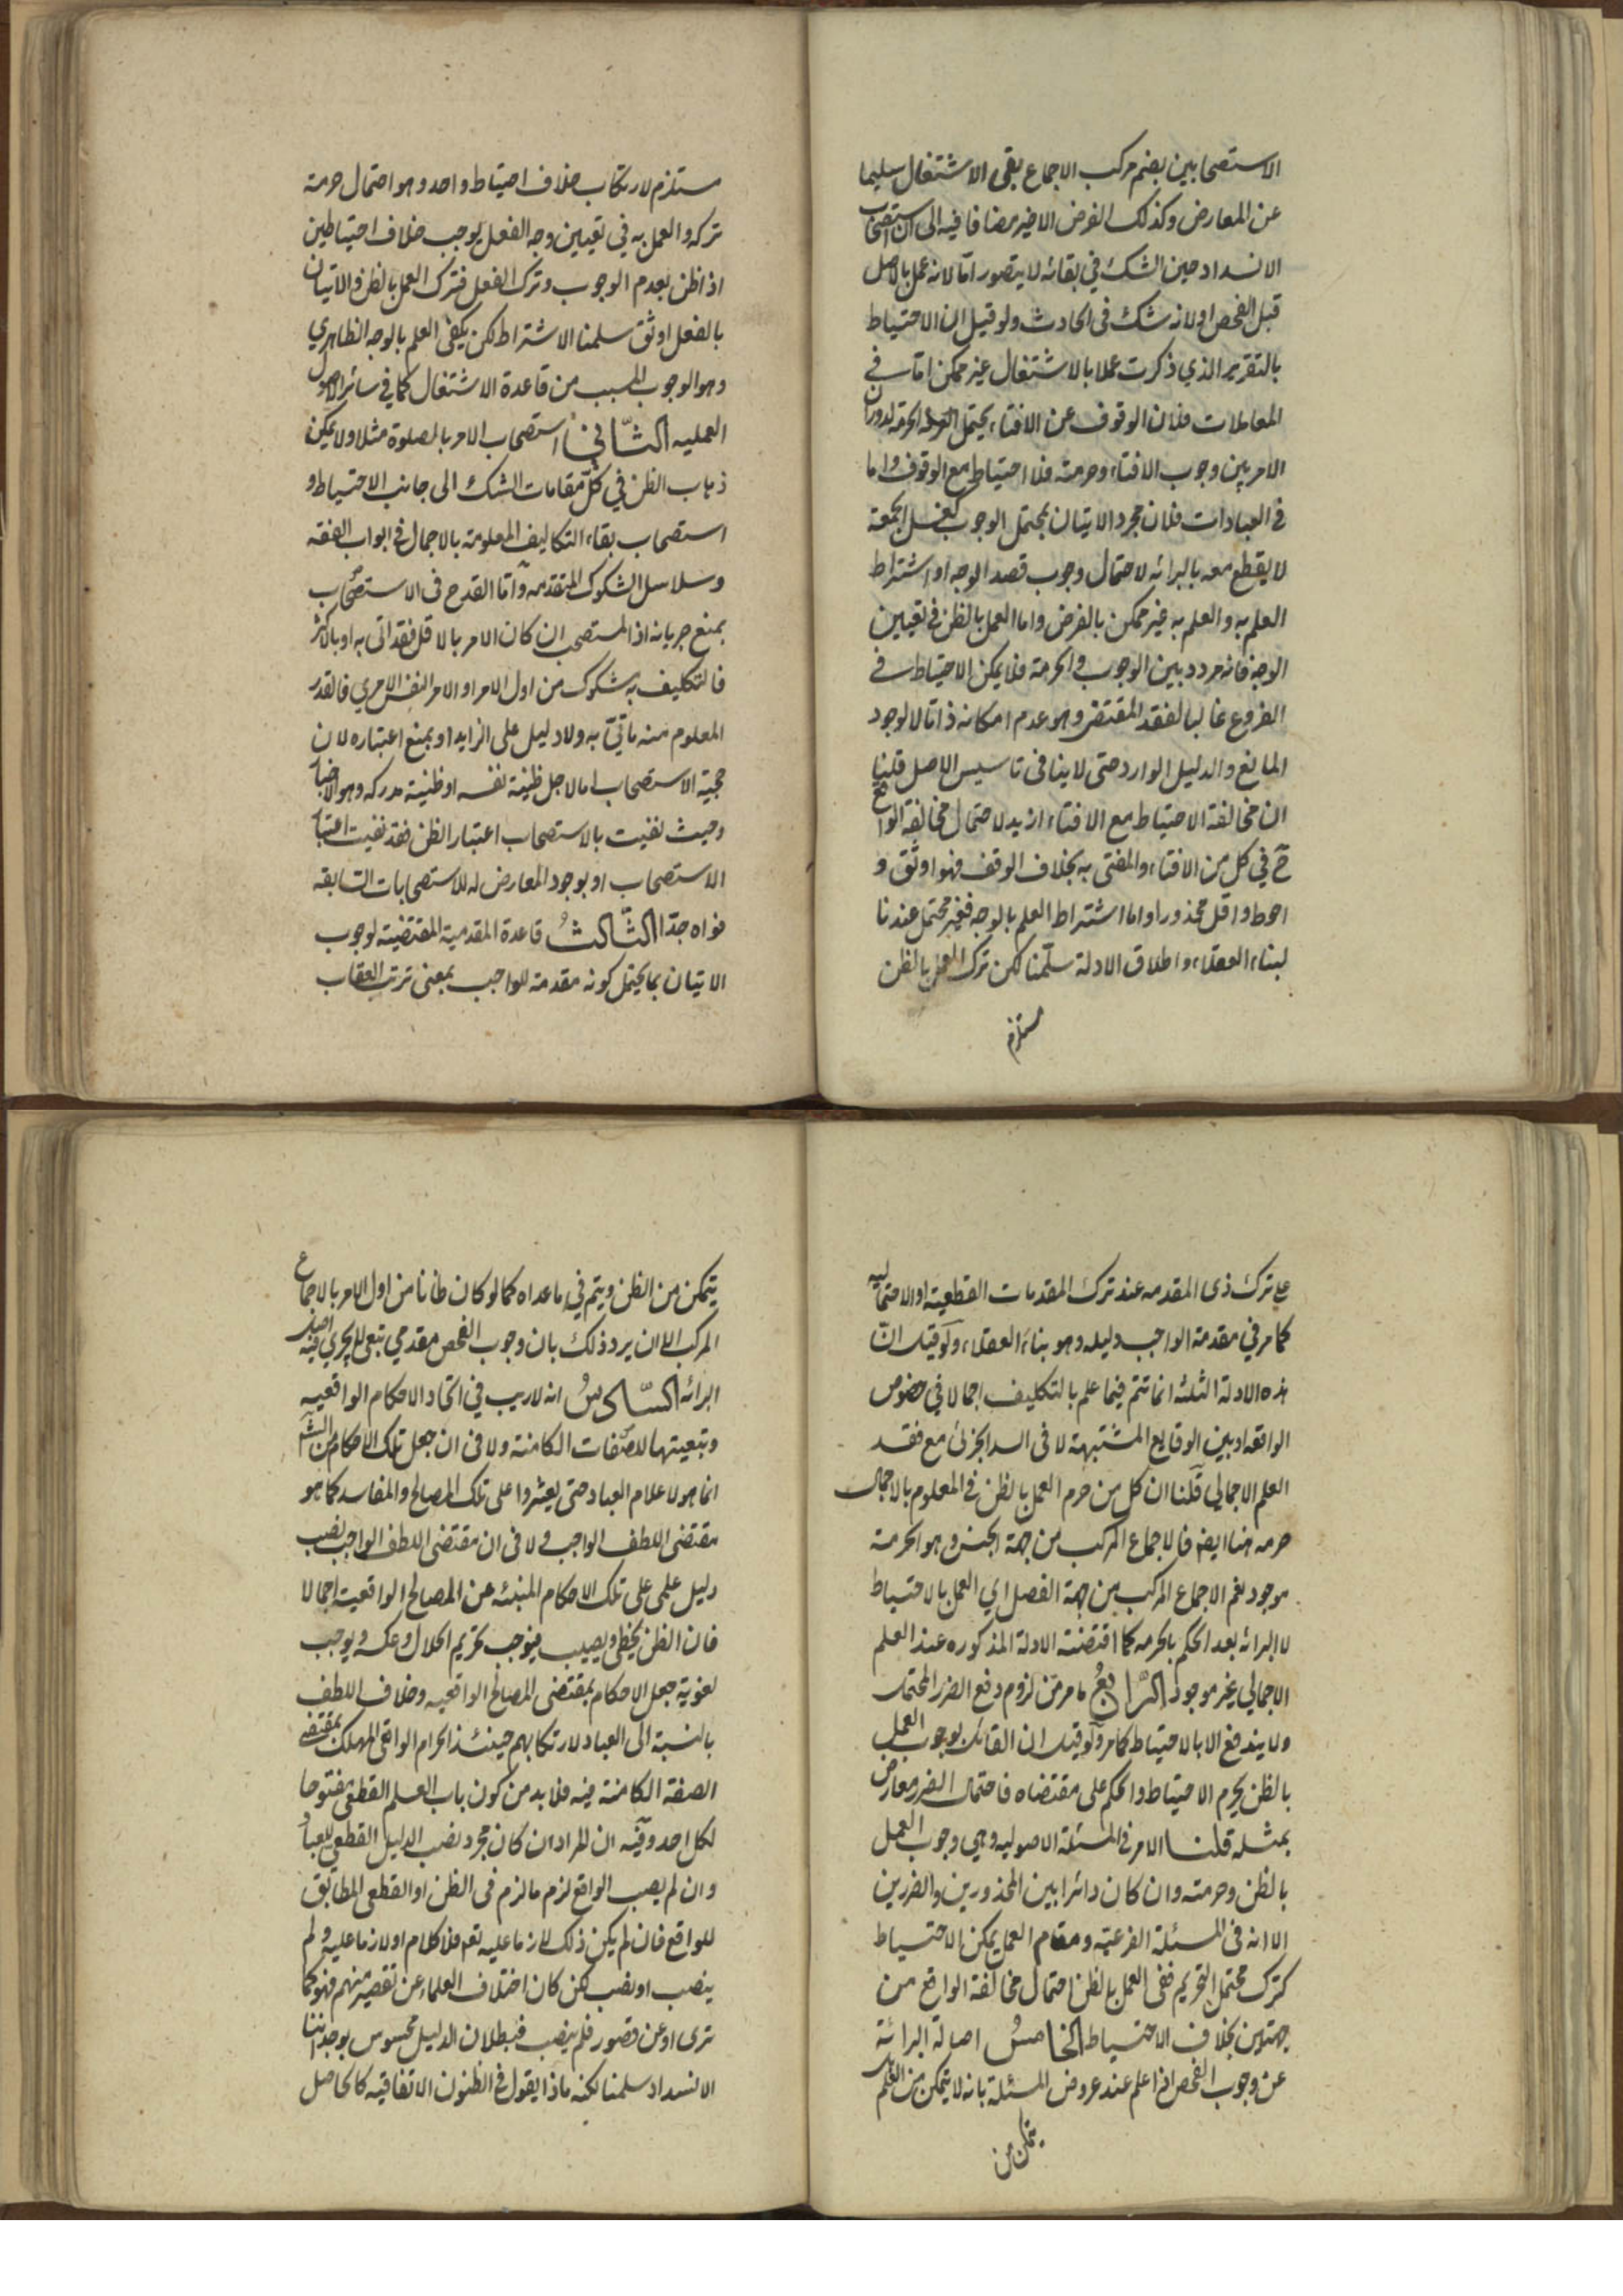 الاستصحابين بضم مركب الاجماع بقى الاشتغال سليما
عن المعارض وكذلك الفرض الاخير مضافا فيه الى ان استصحاب
الانسداد حين الشك في بقائه لا يتصور اما لانه عمل بالاصل
قبل الفحص او لانه شك فى الحادث ولو قيل ان الاحتياط
بالتقرير الذي ذكرت عملا بالاشتغال غير ممكن اما في
المعاملات فلان الوقوف عن الافتاء يحتمل الحرمة لدوران
الامر بين وجوب الافتاء وحرمته فلا احتياط مع الوقوف واما
فى العبادات فلان مجرد الاتيان بمحتمل الوجوب كغسل الجمعة
لا يقطع معه بالبرائه لاحتمال وجوب قصد الوجه او اشتراط
العلم به والعلم به غير ممكن بالفرض واما العمل بالظن في تعيين
الوجه فانه مردد بين الوجوب والحرمة فلا يمكن الاحتياط في
الفروع غالبا لفقد المقتضى وهو عدم امكانه ذاتا لا لوجود
المانع والدليل الوارد حتى لا ينافى تاسيس الاصل قلنا
ان مخالفة الاحتياط مع الافتاء ازيد لاحتمال مخالفة الواقع
ح في كل من الافتاء والمفتى به بخلاف الوقف فهو اوثق و
احوط واقل محذورا واما اشتراط العلم بالوجه فغير محتمل عندنا
لبناء العقلاء واطلاق الادلة سلّمنا لكن ترك العمل بالظن
مستلزم
مستلزم لارتكاب خلاف احتياط واحد وهو احتمال حرمة
تركه والعمل به في تعيين وجه الفعل يوجب خلاف احتياطين
اذا ظن بعدم الوجوب وترك الفعل فترك العمل بالظن والاتيان
بالفعل اوثق سلمنا الاشتراط لكن يكفى العلم بالوجه الظاهري
وهو الوجوب المسبب من قاعدة الاشتغال كما في سائر الاصول
العمليه الثّاني استصحاب الامر بالصلوة مثلا ولا يمكن
ذهاب الظن في كلّ مقامات الشك الى جانب الاحتياط و
استصحاب بقاء التكاليف المعلومة بالاجمال في ابواب الفقه
وسلاسل الشكوك المتقدمه وامّا القدح فى الاستصحاب
بمنع جريانه اذ المستصحب ان كان الامر بالاقل فقد اتى به او بالاكثر
فالتكليف به مشكوك من اول الامر او الامر النفس الامري فالقدر
المعلوم منه ماتيّ به ولا دليل على الزايد او بمنع اعتباره لان
حجية الاستصحاب اما لاجل ظنية نفسه او ظنية مدركه وهو الاخبار
وحيث نفيت بالاستصحاب اعتبار الظن فقد نفيت اعتبار
الاستصحاب او بوجود المعارض له للاستصحابات السّابقه
فواه جدّا الثّالثُ قاعدة المقدمية المقتضية لوجوب
الاتيان بما يحتمل كونه مقدمة للواجب بمعنى ترتب العقاب
على ترك ذى المقدمه عند ترك المقدمات القطعية او الاحتماليه
كما مر في مقدمة الواجب دليله وهو بناء العقلاء ولو قيل ان
هذه الادلة الثلثه انما تتم فيما علم بالتكليف اجمالا في خصوص
الواقعه او بين الوقايع المشتبهة لا فى السد الجزئى مع فقد
العلم الاجمالي قلنا ان كل من حرم العمل بالظن في المعلوم بالاجمال
حرمه هنا ايضا فالاجماع المركب من جهة الجنس وهو الحرمة
موجود نعم الاجماع المركب من جهة الفصل اي العمل بالاحتياط
لا البرائه بعد الحكم بالحرمه كما اقتضته الادلة المذكوره عند العلم
الاجمالي غير موجود الرّابعُ ما مر من لزوم دفع الضرر المحتمل
ولا يندفع الا بالاحتياط كما مر ولو قيل ان القائل بوجوب العمل
بالظن يحرم الاحتياط والحكم على مقتضاه فاحتمال الضرر معارض
بمثله قلنا الامر في المسئلة الاصوليه وهي وجوب العمل
بالظن وحرمته وان كان دائرا بين المحذورين والضررين
الا انه فى المسئلة الفرعيّه ومقام العمل يمكن الاحتياط
كترك محتمل التحريم ففى العمل بالظن احتمال مخالفة الواقع من
جهتين بخلاف الاحتياط الخامسُ اصالة البرائة
عن وجوب الفحص اذا علم عند عروض المسئلة بانه لا يتمكن من العلم
يتمكن من
يتمكن من الظن ويتم في ما عداه كما لو كان ظانا من اول الامر بالاجماع
المركب الا ان يرد ذلك بان وجوب الفحص مقدمي تبعى لا يجري فيه اصل
البرائه السّادسُ انه لا ريب في اتحاد الاحكام الواقعيه
وتبعيتها للصّفات الكامنة ولا فى ان جعل تلك الاحكام من الشّرع
انما هو لاعلام العباد حتى يعثروا على تلك المصالح والمفاسد كما هو
مقتضى اللطف الواجب ولا فى ان مقتضى اللطف الواجب نصب
دليل علمى على تلك الاحكام المنبئه عن المصالح الواقعية اجمالا
فان الظن يخطى ويصيب فيوجب تحريم الحلال وعكسه ويوجب
لغوية جعل الاحكام بمقتضى المصالح الواقعيه وخلاف اللطف
بالنسبة الى العباد لارتكابهم حينئذ الحرام الواقعى المهلك بمقتضى
الصفة الكامنة فيه فلا بد من كون باب العلم القطعى مفتوحا
لكل احد وفيه ان المراد ان كان مجرد نصب الدليل القطعى للعباد
وان لم يصب الواقع لزم ما لزم فى الظن او القطعى المطابق
للواقع فان لم يكن ذلك لازما عليه تعم فلا كلام او لازما عليه ولم
ينصب او نصب لكن كان اختلاف العلماء عن تقصير منهم فهو كما
ترى او عن قصور فلم ينصب فبطلان الدليل محسوس بوجداننا
الانسداد سلمنا لكنه ماذا يقول في الظنون الاتفاقيه كالحاصل